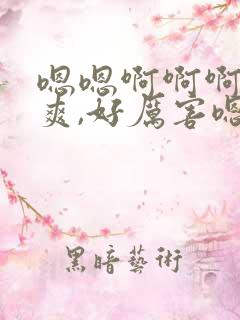 嗯嗯啊啊啊
爽,好厲害嗯
黑暗藝術